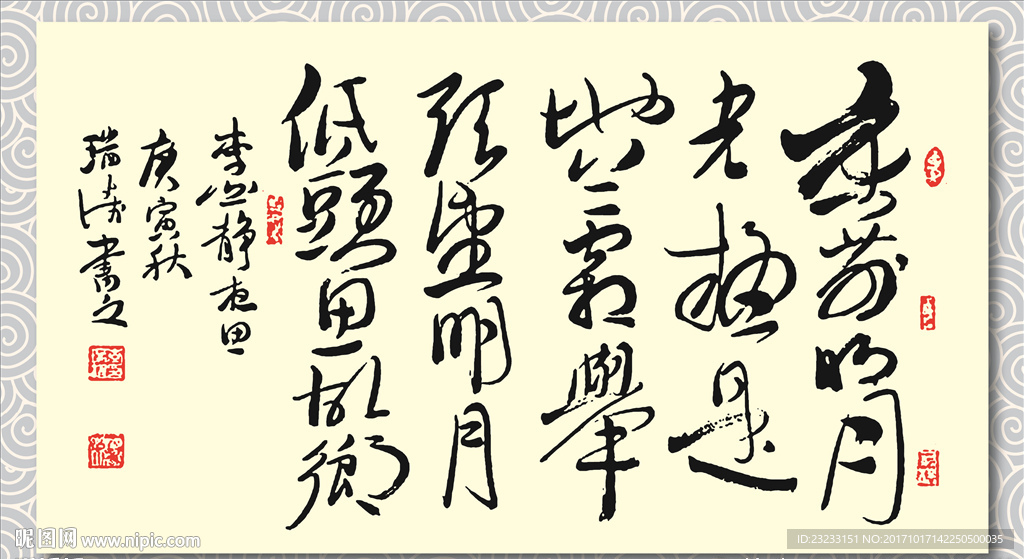 床前明月
光疑是
地上霜舉
頭望明月
低頭思故鄉
李白静夜思
庚寅秋
瑞 書之
昵图网 www.nipic.com
ID:23233151 NO:20171017142250500035